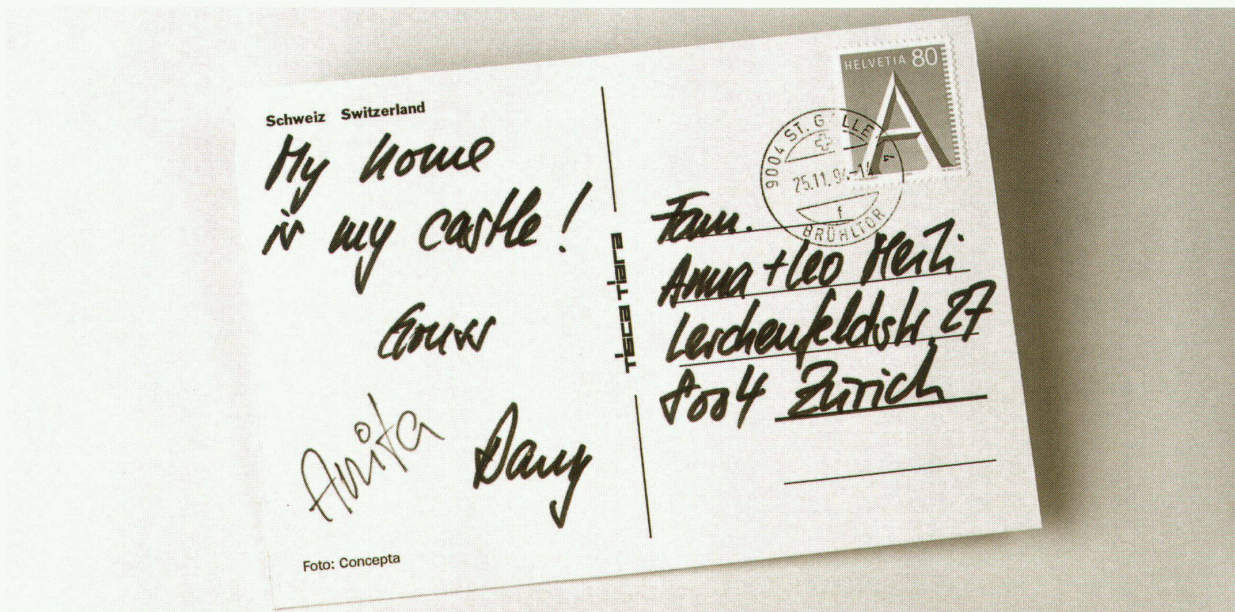 Schweiz Switzerland
My home
is my castle!
Gruss
Anita
Dany
Foto: Concepta
teca tiara
HELVETIA 80
A
9004 ST. GALLEN 7
25.11.94-14
f
BRÜHLTOR
Fam.
Anna + Leo
Lerchenfeldstr. 27
8004 Zürich